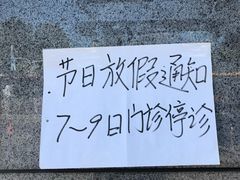 节日放假通知
7～9日门诊停诊